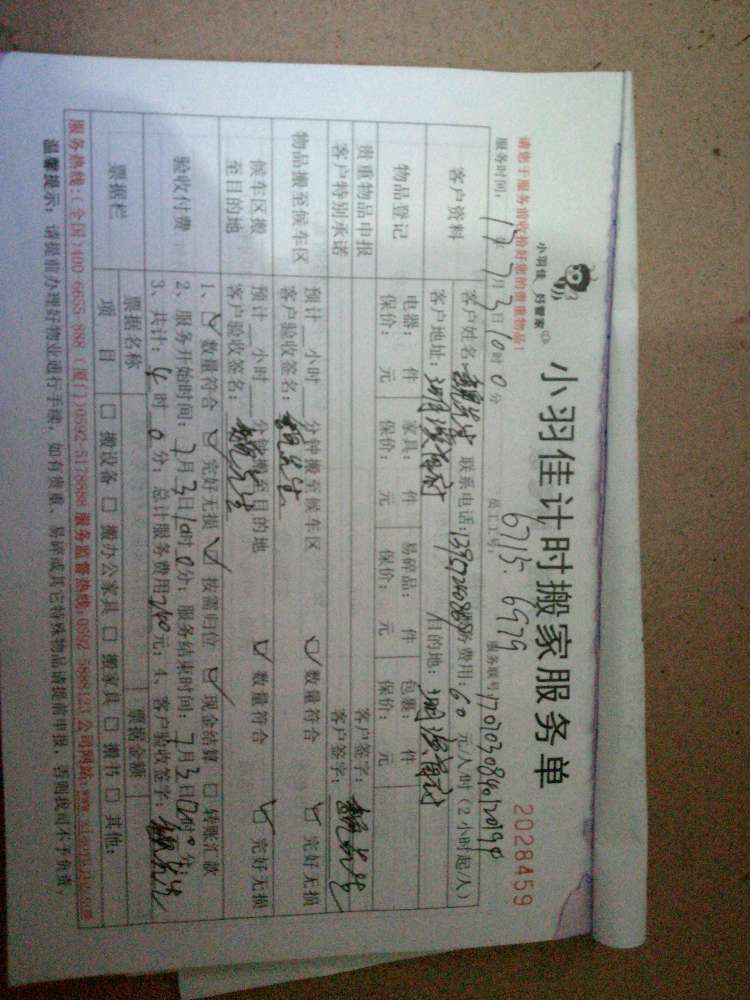 小羽佳 好管家
小羽佳计时搬家服务单
2028459
请您于服务前收拾好您的贵重物品！
服务时间：17年7月3日10时0分 员工工号：6715 6979 服务联号
客户资料
客户姓名： 联系电话： 服务费用：60元/人/时（2小时起/人）
客户地址： 目的地：
物品登记
电器： 件 家具： 件 易碎品： 件 包裹： 件
保价： 元 保价： 元 保价： 元 保价： 元
贵重物品申报 客户签字：
客户特别承诺 客户签字：
物品搬至候车区
预计 小时 分钟搬至候车区 数量符合 完好无损
客户验收签名：
候车区搬
至目的地
预计 小时 分钟搬至目的地 数量符合 完好无损
客户验收签名：
验收付费
1、 数量符合 完好无损 按需归位 现金结算 转账汇款
2、服务开始时间：7月3日10时0分；服务结束时间：7月3日 时 分；
3、共计： 时0分；总计服务费用 元；4、客户验收签字：
票据栏
票据名称 票据金额
项 目 搬设备 搬办公家具 搬家具 搬书 其他：
服务热线：(全国)400-6655-888 (厦门)0592-5178888 服务监督热线：0592-5888123 公司网站：www.xiaoyujia.com
温馨提示：请提前办理好物业进行手续，如有贵重、易碎或其它特殊物品请提前申报，否则我司不予负责。